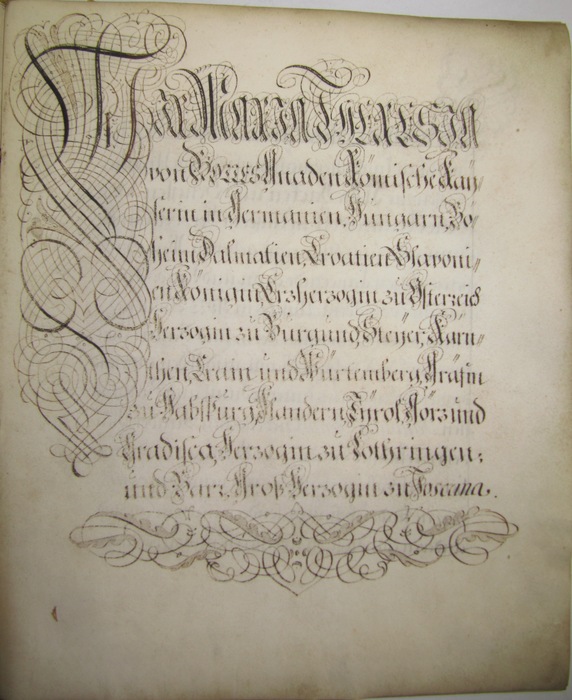 Wir Maria Theresia
von Gottes Gnaden Römische Kay„
serin in Germanien, Hungarn, Bö„
heim, Dalmatien, Croatien, Slavoni„
en Königin, Erzherzogin zu Österreich
Herzogin zu Burgund, Steyer, Kärn„
then, Crain und Würtemberg, Gräfin
zu Habsburg, Flandern, Tÿrol, Görz und
Gradisca, Herzogin zu Lothringen,
und Barr, Groß Herzogin zu Toscana.